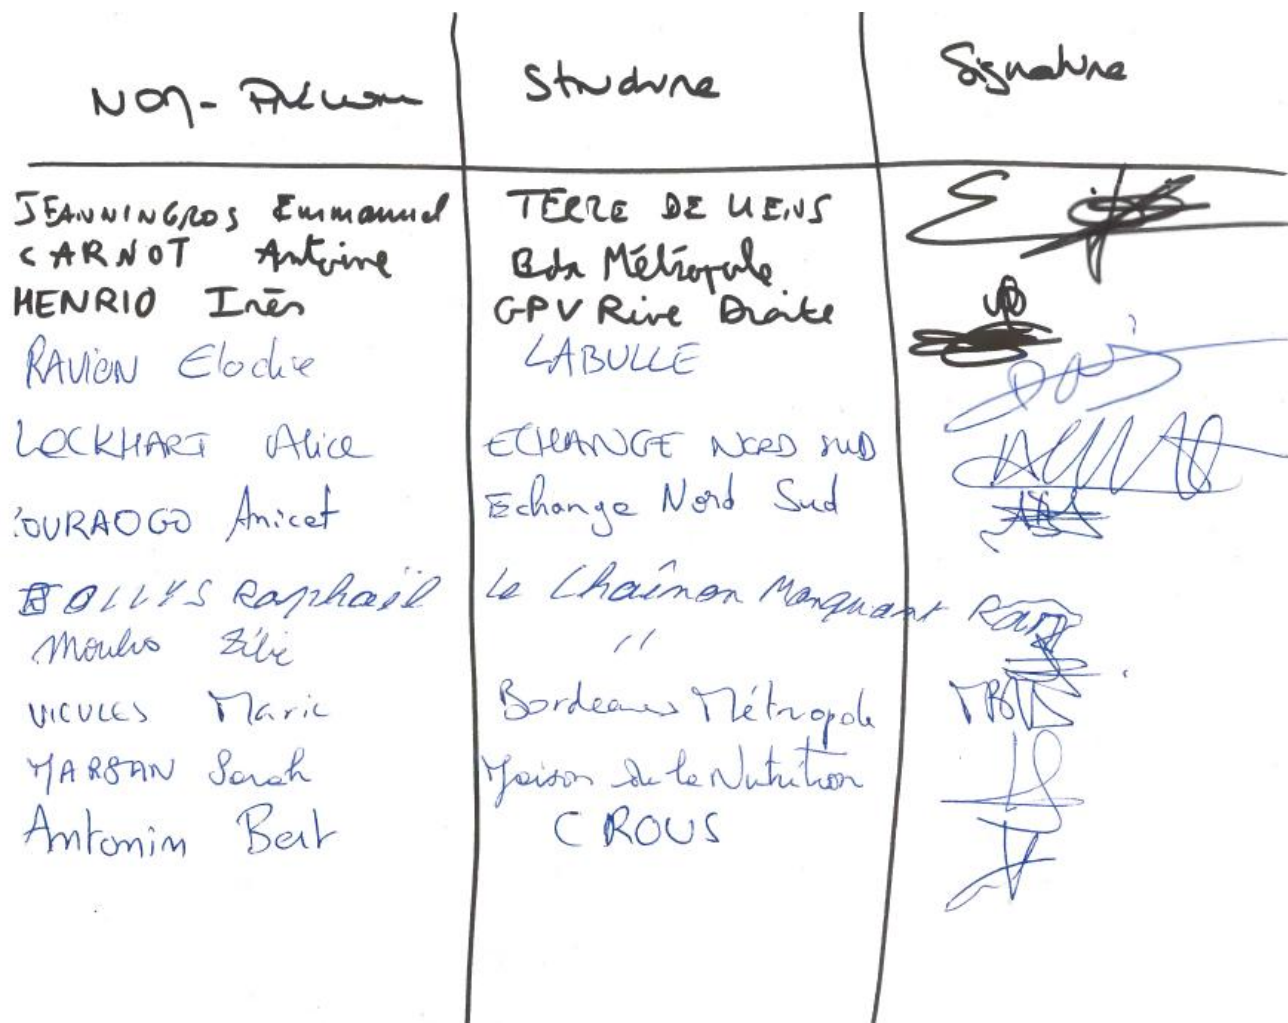 NOM - Prénom Structure Signature
JEANNINGROS Emmanuel TERRE DE LIENS
CARNOT Antoine Bdx Métropole
HENRIO Inès GPV Rive Droite
RAVION Elodie LABULLE
LOCKHART Alice ECHANGE NORD SUD
OURAOGO Anicet Echange Nord Sud
Raphaël Le Chaînon Manquant
〃
Marie Bordeaux Métropole
MARSAN Sarah Maison de la Nutrition
Antonin Bert CROUS